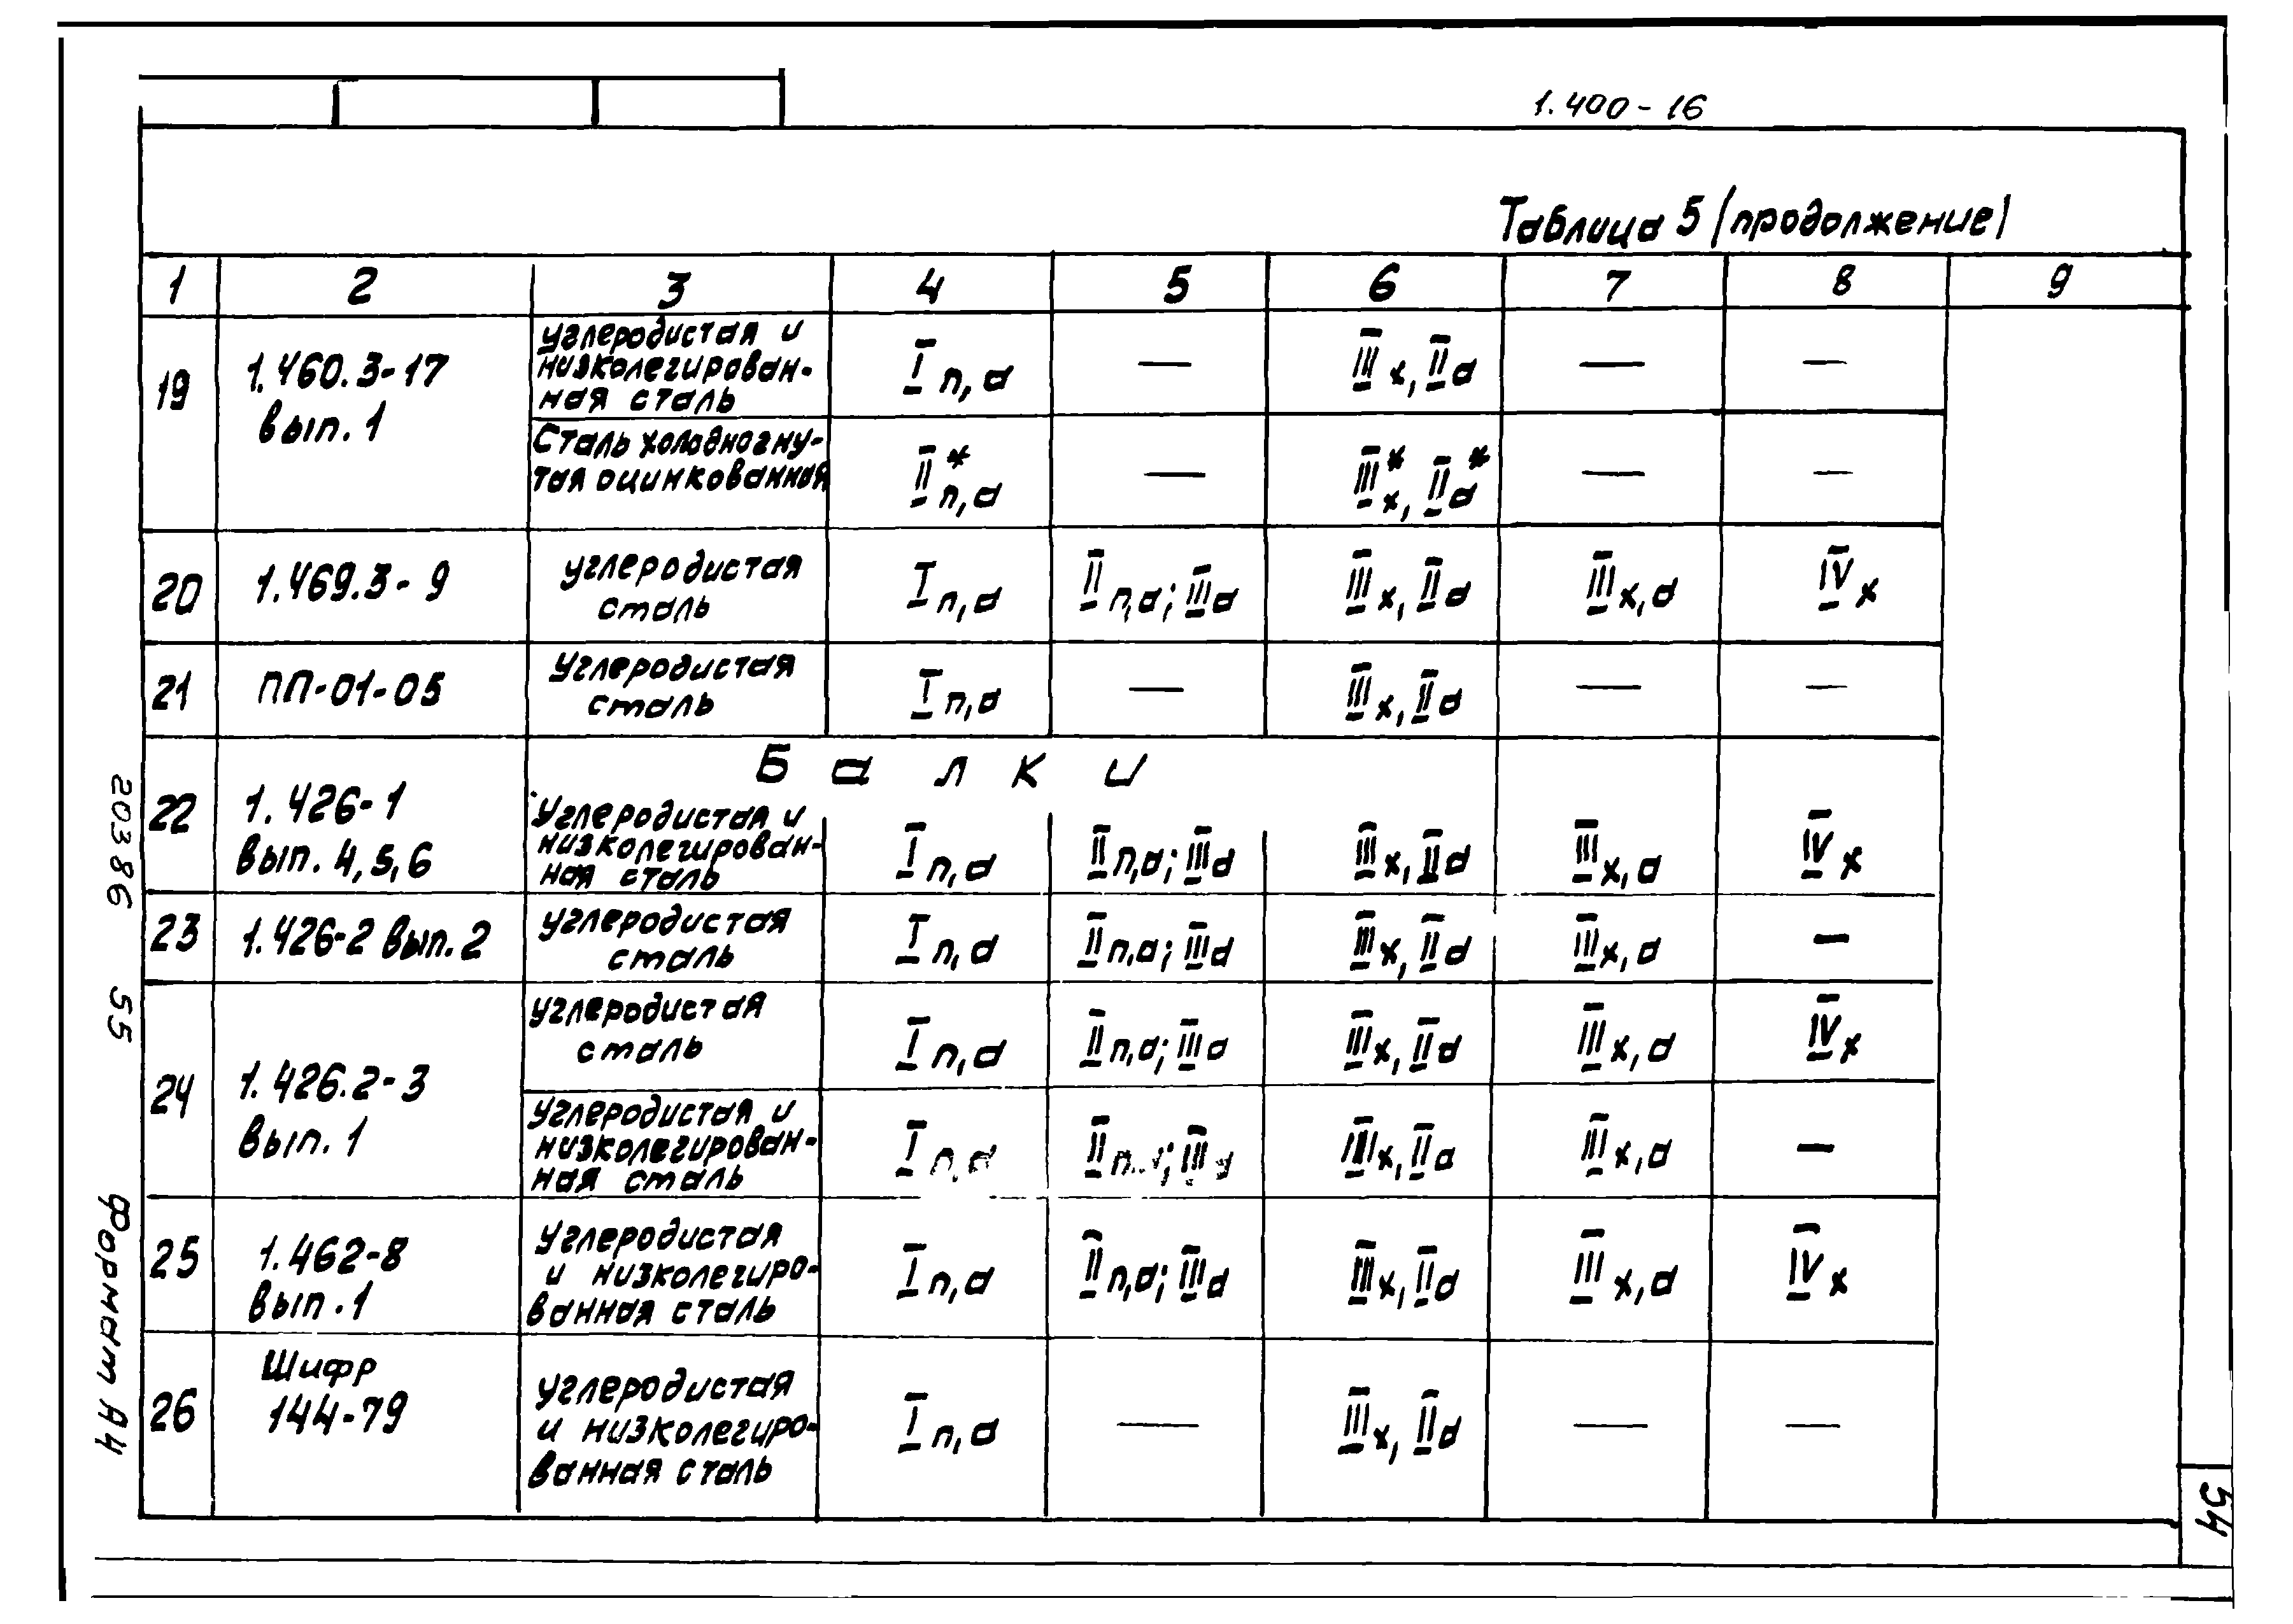 1.400-16
Таблица 5 (продолжение)
1 2 3 4 5 6 7 8 9
19 1.460.3-17 вып. 1 углеродистая и низколегирован- ная сталь I п,а — III х, II а — —
Сталь холодногну- тая оцинкованная II* п,а — III* х, II* а — —
20 1.469.3-9 углеродистая сталь I п,а II п,а; III а III х, II а III х,а IV х
21 ПП-01-05 Углеродистая сталь I п,а — III х, II а — —
Балки
22 1.426-1 вып. 4,5,6 Углеродистая и низколегирован- ная сталь I п,а II п,а; III а III х, II а III х,а IV х
23 1.426-2 вып. 2 углеродистая сталь I п,а II п,а; III а III х, II а III х,а —
24 1.426.2-3 вып. 1 углеродистая сталь I п,а II п,а; III а III х, II а III х,а IV х
углеродистая и низколегирован- ная сталь I п,а II III III х, II а III х,а —
25 1.462-8 вып. 1 углеродистая и низколегиро- ванная сталь I п,а II п,а; III а III х, II а III х,а IV х
26 Шифр 144-79 углеродистая и низколегиро- ванная сталь I п,а — III х, II а — —
20386 55
Формат А4
54